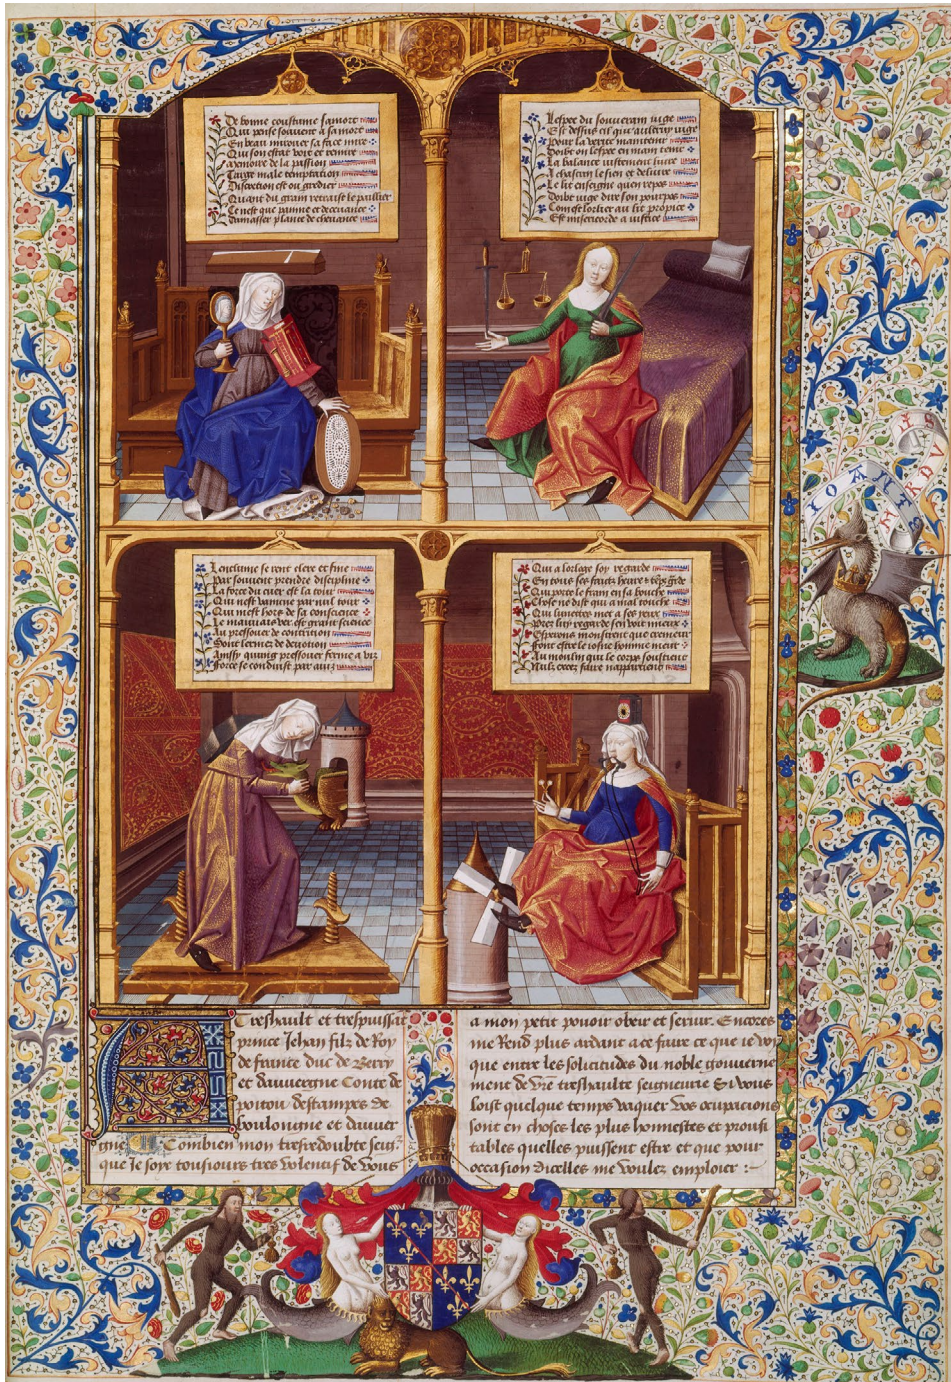 De bonne coustume sa mort
Qui pense souvent a sa mort
En beau mirouer sa face mire
Qui son estat voit et remire
Memoire de la passion
Targe male temptation
Discretion est ou grenier
Quant du grain retraise le paillier
Ce n'est que paine et decevance
D'amasser plante de chevance
Lespee du souverain iuge
Est dessus cil que aultruy iuge
Pour la verite maintenir
Doibt on lespee en main tenir
La balance iustement livre
A chascun le sien et delivre
Le lit enseigne quen repos
Doibt iuge dire son pourpos
Come est lorlier au lit propice
Est misericorde a iustice
Lenclume se rent clere et fine
Par souvent prendre discipline
La force du cuer est la tour
Qui nest vaincue par nul tour
Qui met hors de sa conscience
Le mauvais ver est grant science
Au pressouer de contrition
Sont lermes de devotion
Ainsy quung pressouer ferme a viz
Force se conduist par aviz
Qui a lorloge soy regarde
En tous ses faictz heure et temps garde
Qui porte le frain en sa bouche
Chose ne dist qui a mal touche
Qui lunettes met a ses yeux
Prez luy regarde sen voit mieux
Esperons monstrent que cremeur
Font estre le josne homme meur
Au moulin qui le corps soustient
Nulz exces faire nappartient
IOANES
MRDVL
A Treshault et trespuissat
prince Jehan filz de Roy
de france duc de Berry
et dauvergne Conte de
poitou destampes de
boulongne et dauver
gne Combien mon tresredoubte seigr
que Je soye tousiours tres volentif de vous
a mon petit povoir obeir et servir. Encores
me Rend plus ardant a ce faire ce que ie voy
que entre les solicitudes du noble gouverne
ment de vre treshaulte seigneurie Si vous
loist quelque temps vaquer vos ocupacions
sont en choses les plus honnestes et proufi
tables quelles puissent estre et que pour
occasion dicelles me voulez emploier :~